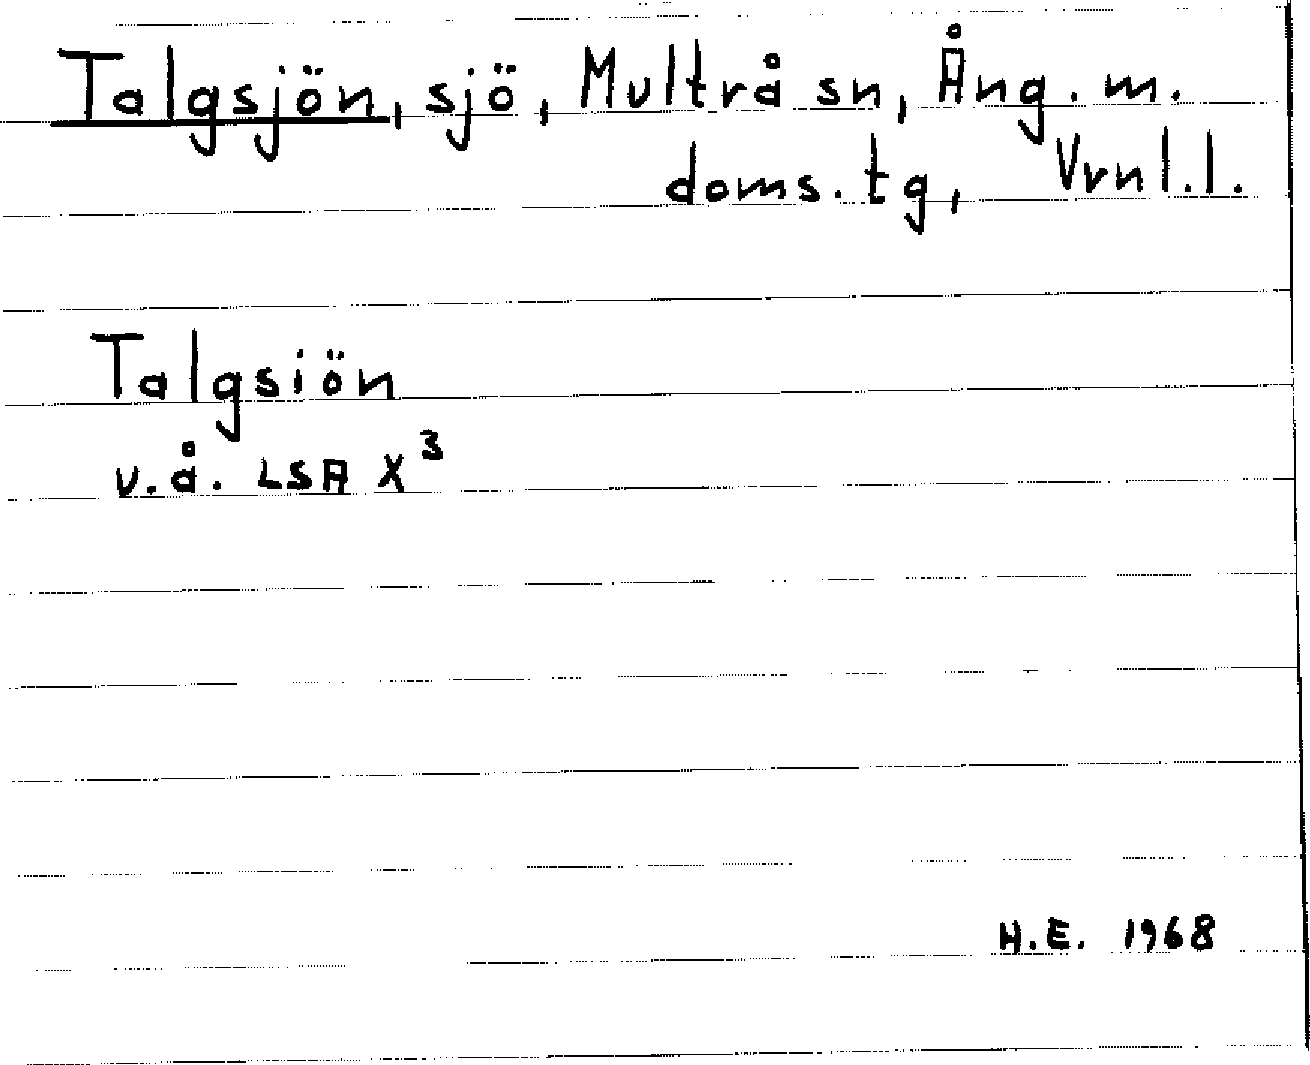 Talgsjön, sjö, Multrå sn, Ång. m.
doms.tg, Vrnl.l.
Talgsiön
v.å. LSA X³
H.E. 1968